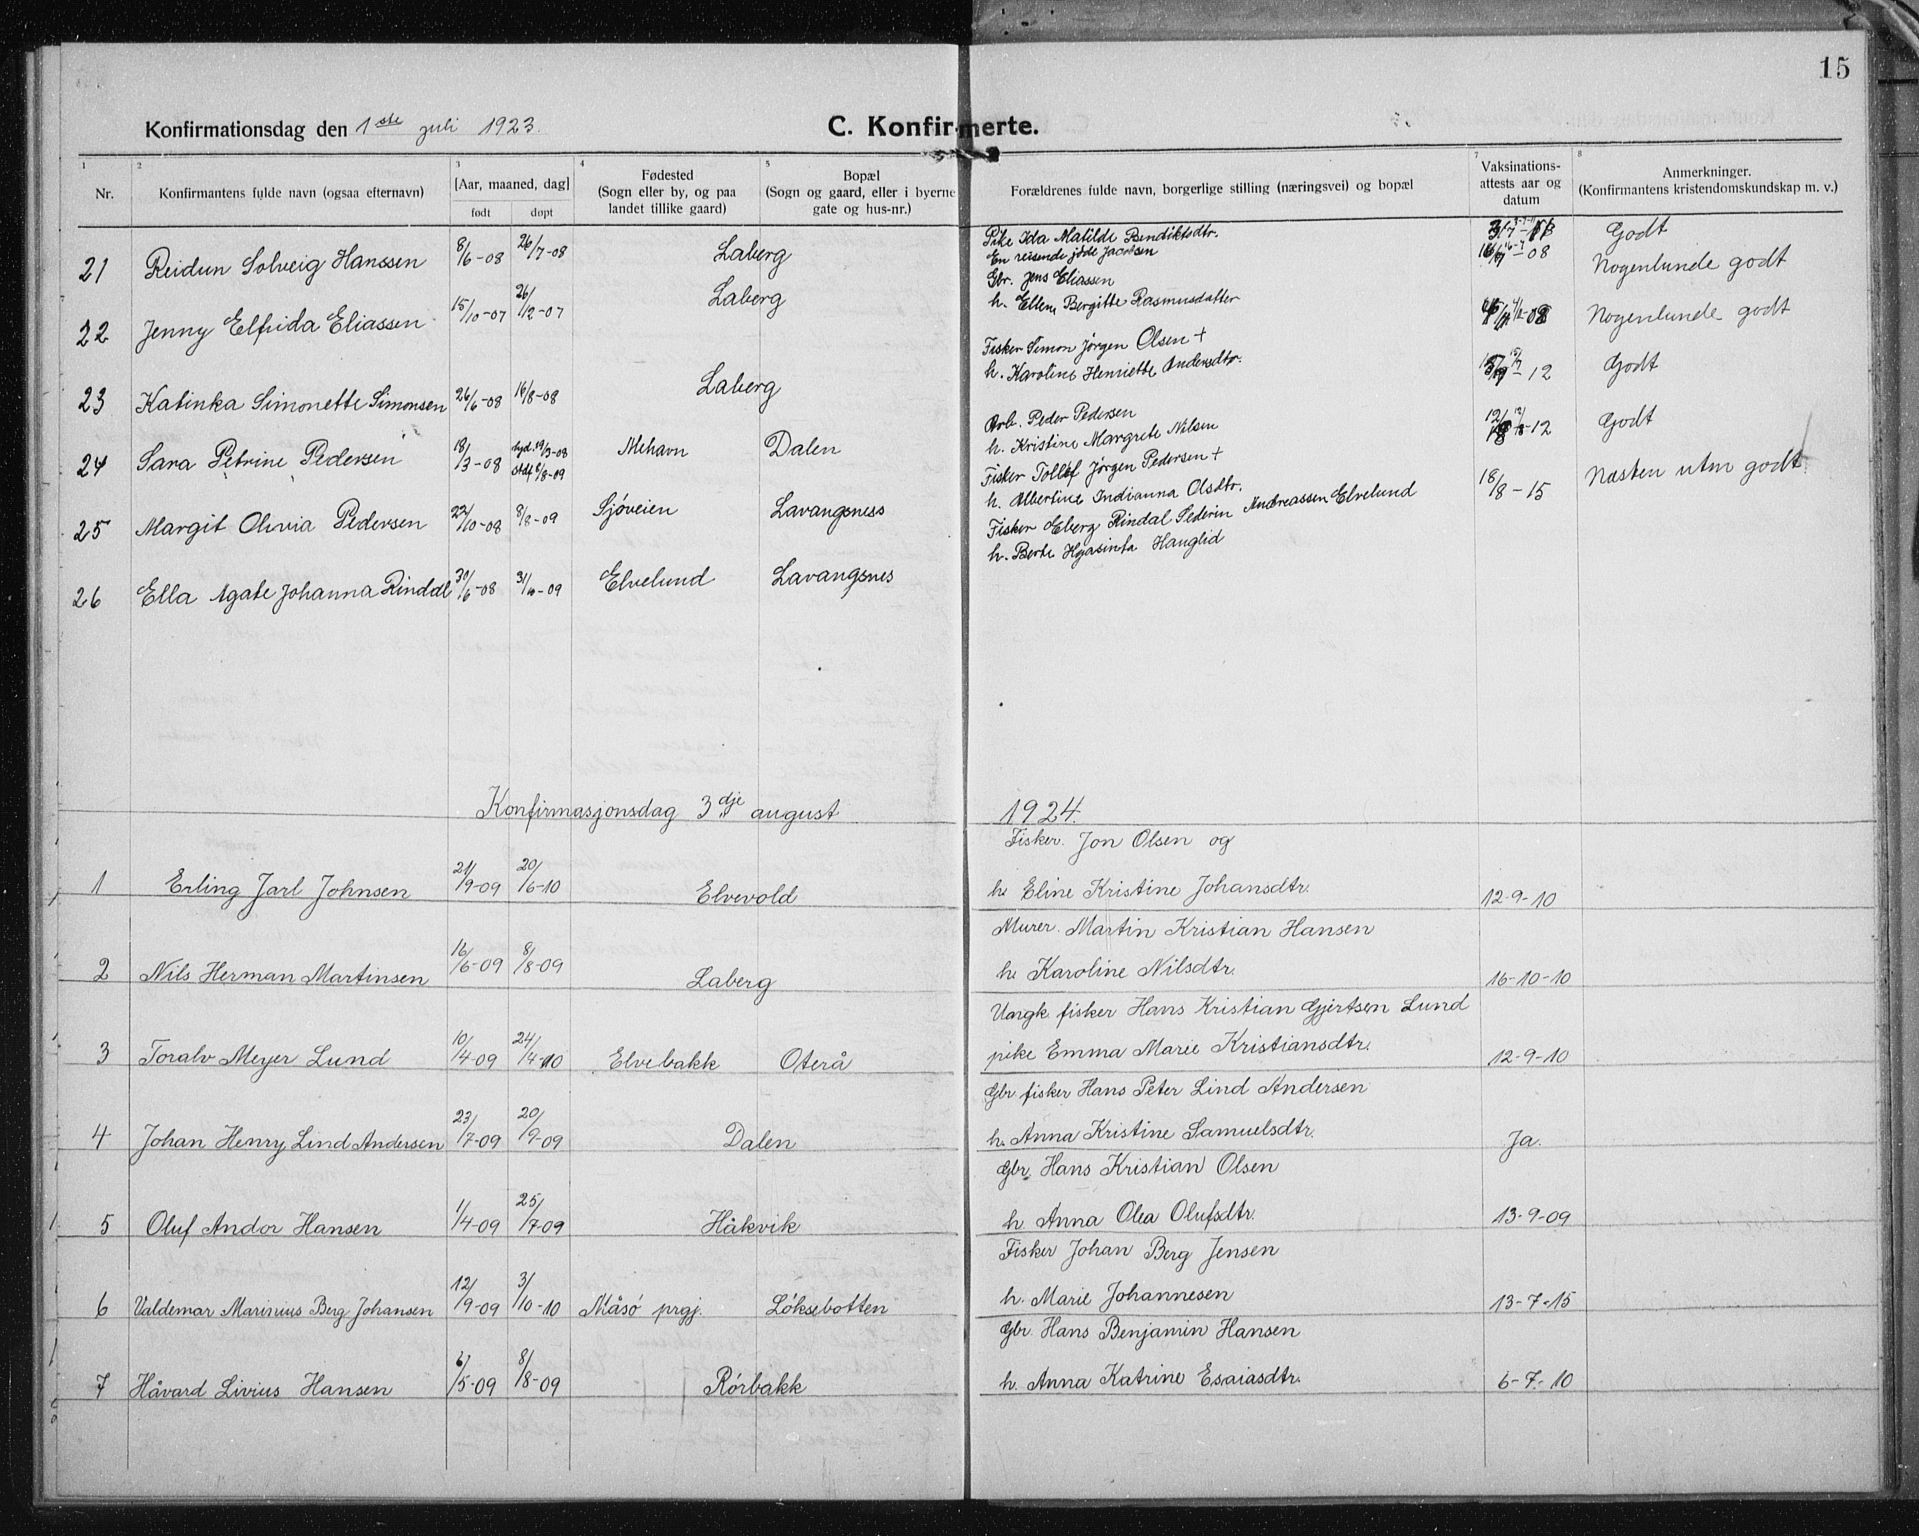 15
Konfirmationsdag den 1ste juli 1923.
C. Konfirmerte.
1 2 3 4 5 7 8
Nr.
Konfirmantens fulde navn (ogsaa efternavn)
[Aar, maaned, dag]
født døpt
Fødested
(Sogn eller by, og paa
landet tillike gaard)
Bopæl
(Sogn og gaard, eller i byerne
gate og hus-nr.)
Forældrenes fulde navn, borgerlige stilling (næringsvei) og bopæl
Vaksinations-
attests aar og
datum
Anmerkninger.
(Konfirmantens kristendomskundskap m. v.)
21 Reidun Solveig Hanssen 8/6-08 26/7-08 Laberg
Pike Ida Matilde Bendiktsdtr.
En reisende jøde Jacobsen
Godt
22 Jenny Elfrida Eliassen 15/10-07 26/12-07 Laberg
Gbr. Jens Eliassen
h. Ellen Bergitte Rasmusdatter
Nogenlunde godt
23 Katinka Simonette Simonsen 26/6-08 16/8-08 Laberg
Fisker Simon Jørgen Olsen +
h. Karoline Henriette Andersdtr.
Nogenlunde godt
24 Sara Petrine Pedersen 18/3-08 hjd. 19/3-08
stdf 8/8-09
Mehavn Dalen
Arb. Peder Pedersen
h. Kristine Margrete Nilsen
Godt
25 Margit Olivia Pedersen 22/10-08 8/8-09 Sjøveien Lavangsness
Fisker Tollef Jørgen Pedersen +
h. Albertine Indianna Olsdtr.
Godt
26 Ella Agate Johanna Rindal 30/6-08 Elvelund Lavangsnes
Fisker Eberg Rindal Pederin Andreassen Elvelund
h. Berte Hyasinta Hauglid
18/8-15
Næsten utm godt
Konfirmasjonsdag 3dje august 1924.
Fisker. Jon Olsen og
1 Erling Jarl Johnsen 21/9-09 20/6-10 Elvevold h. Eline Kristine Johansdtr. 12-9-10
Murer. Martin Kristian Hansen
2 Nils Herman Martinsen 16/6-09 8/8-09 Laberg h. Karoline Nilsdtr. 16-10-10
Ungk. fisker Hans Kristian Gjertsen Lund
3 Toralv Meyer Lund 10/4-09 24/4-10 Elvebakk Oterå pike Emma Marie Kristiansdtr. 12-9-10
Gbr. fisker Hans Peter Lind Andersen
4 Johan Henry Lind Andersen 23/7-09 20/9-09 Dalen h. Anna Kristine Samuelsdtr. Ja.
Gbr. Hans Kristian Olsen
5 Oluf Andor Hansen 1/4-09 25/7-09 Håkvik h. Anna Olea Olufsdtr. 13-9-09
Fisker Johan Berg Jensen
6 Valdemar Marinius Berg Johansen 12/9-09 3/10-10 Måsø prgj. Løksebotten h. Marie Johannesen 13-7-15
Gbr. Hans Benjamin Hansen
7 Håvard Livius Hansen 6/5-09 8/8-09 Rørbakk h. Anna Katrine Esaiasdtr. 6-7-10